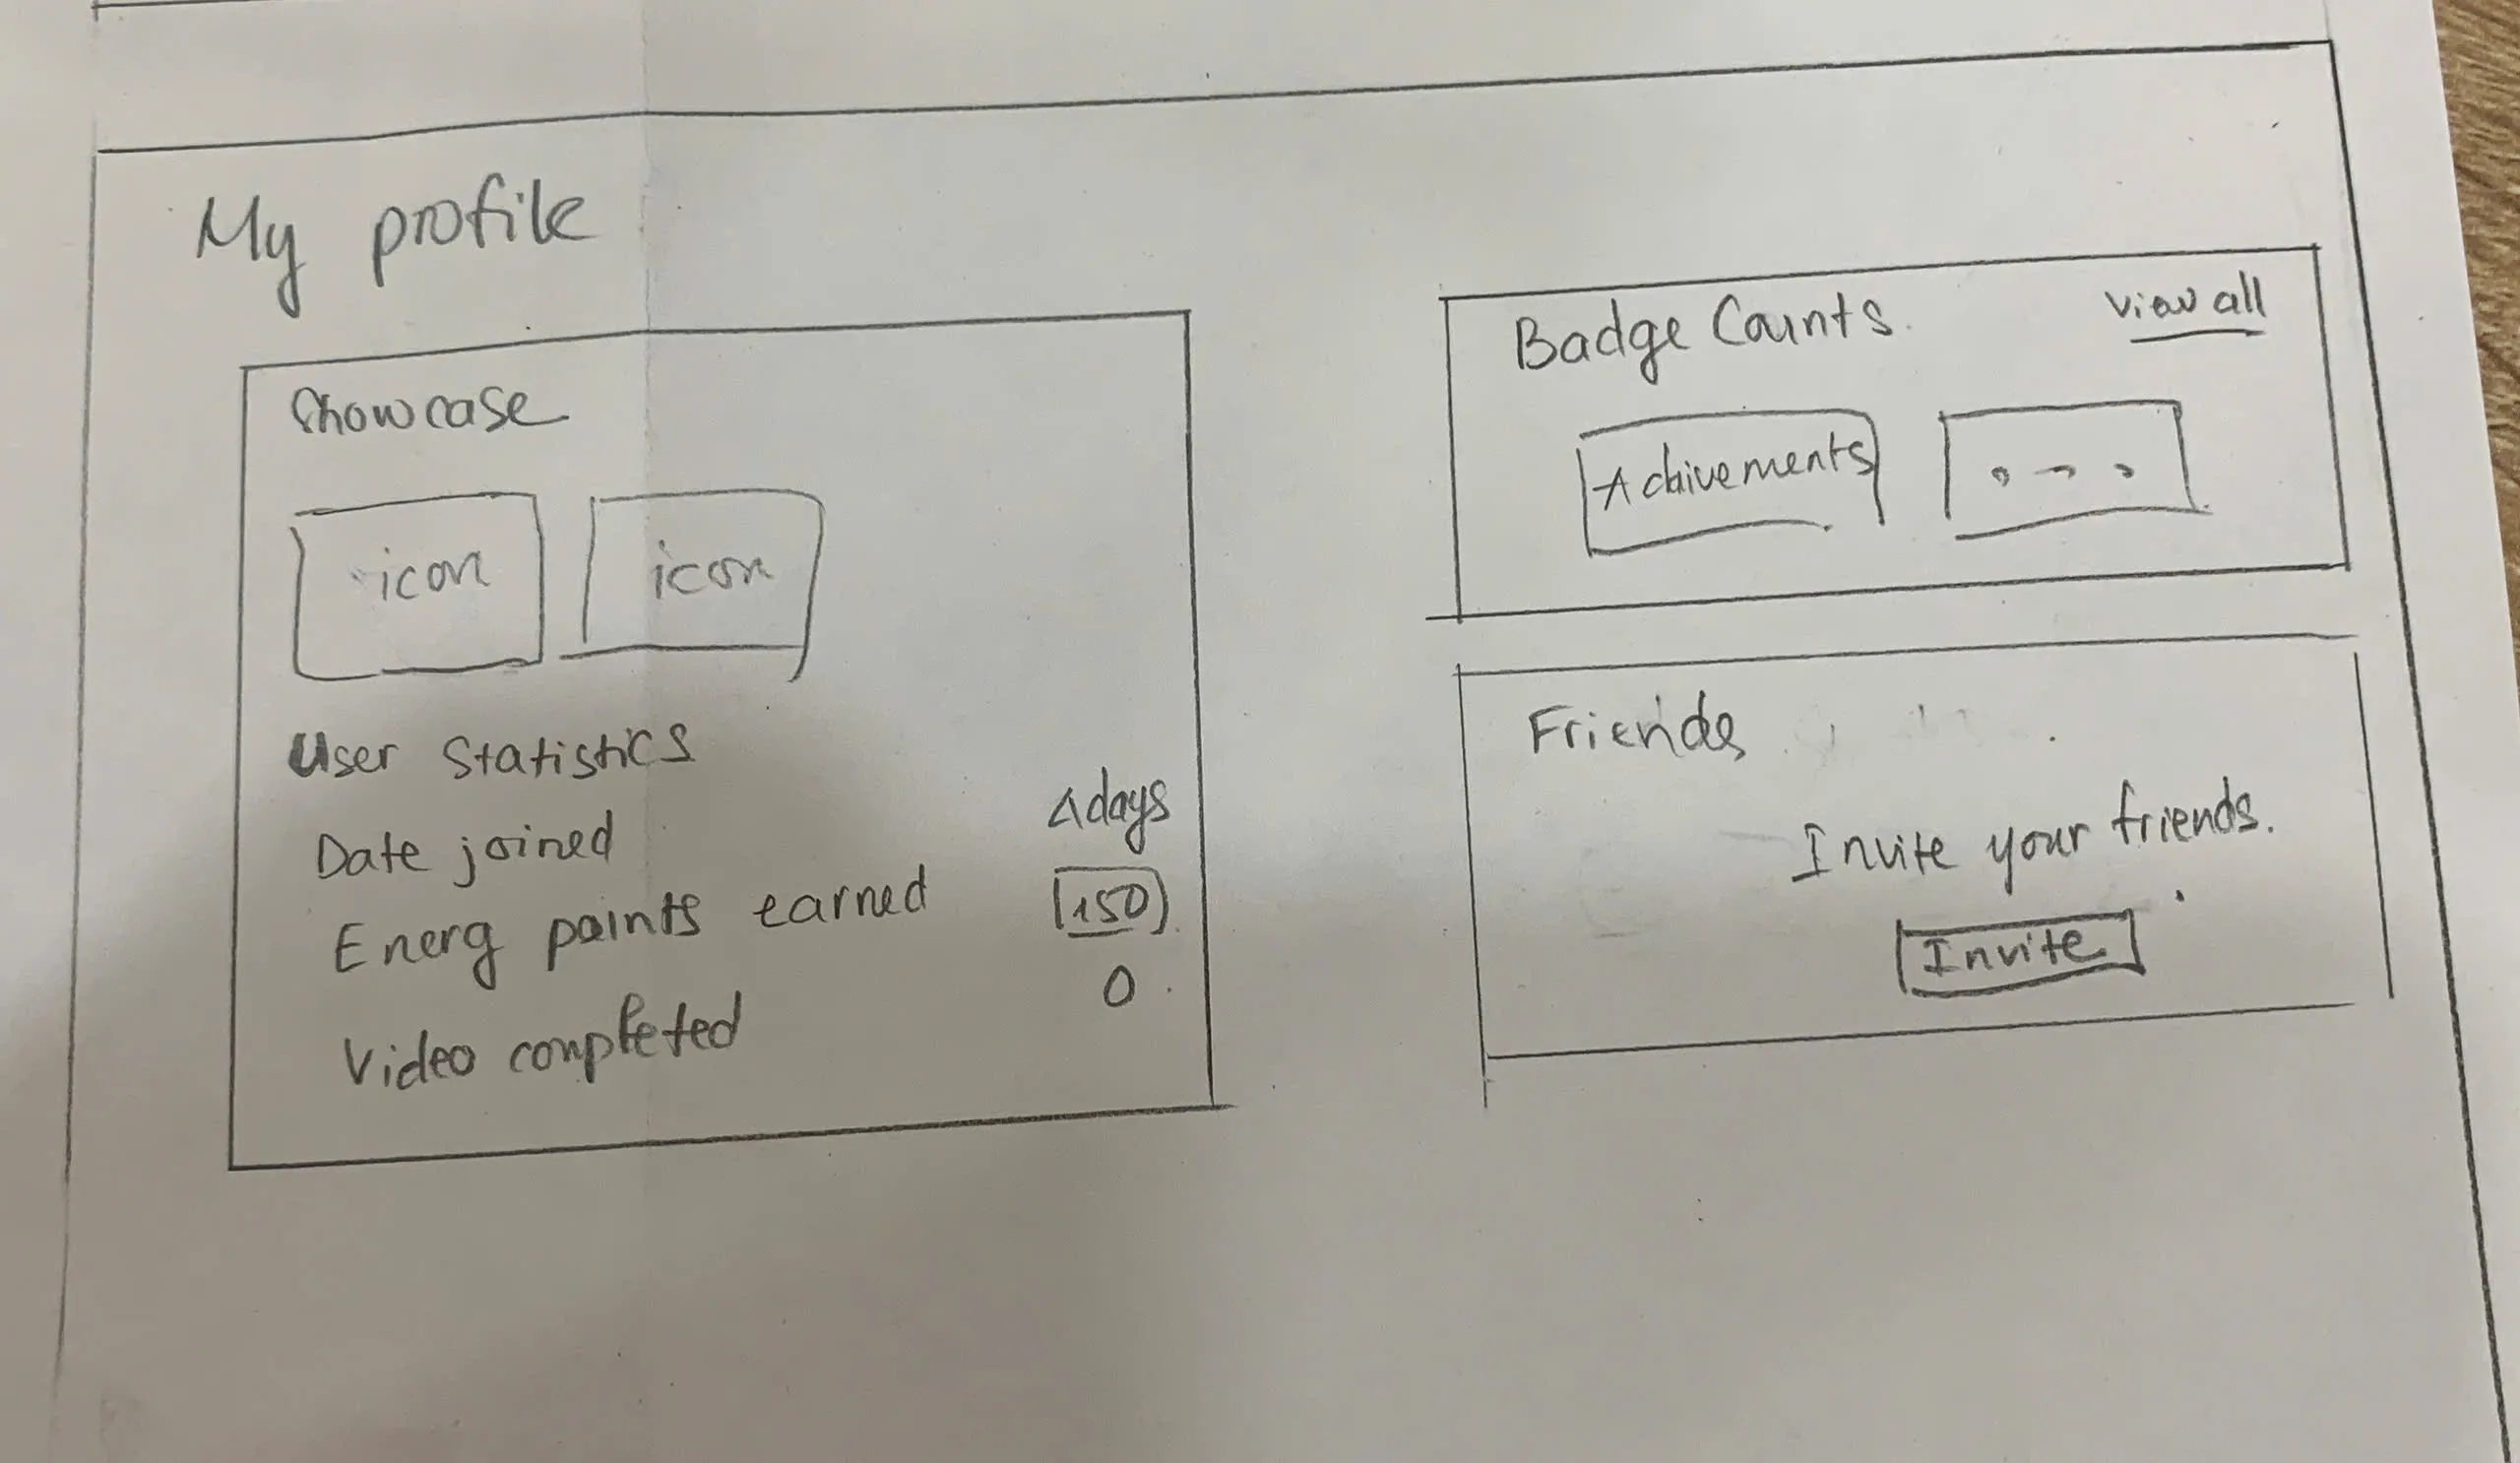 My profile
Showcase
icon icon
User Statistics
Date joined 4days
Energ points earned 150
Video completed 0
Badge Counts. View all
Achivements ...
Friends
Invite your friends.
Invite